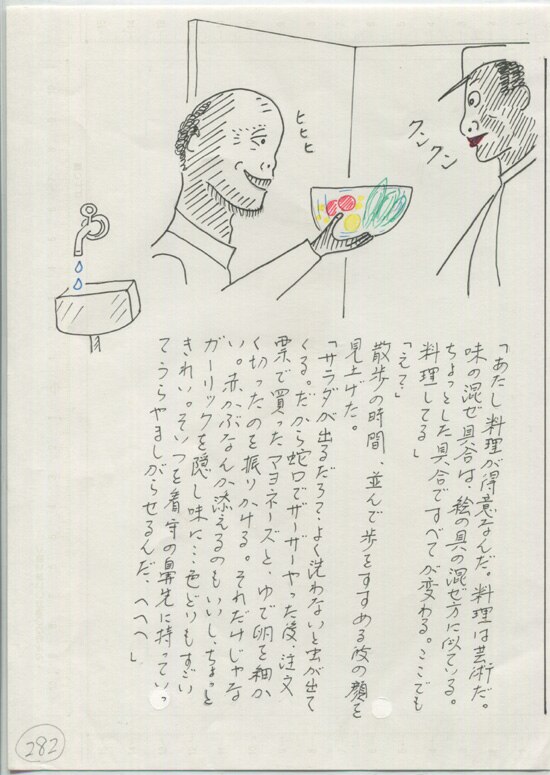 ヒヒヒ
クンクン
「あたし料理が得意なんだ。料理は芸術だ。
味の混ぜ具合は、絵の具の混ぜ方に似ている。
ちょっとした具合ですべてが変わる。ここでも
料理してる」
「え？」
散歩の時間、並んで歩をすすめる彼の顔を
見上げた。
「サラダが出るだろて、よく洗わないと虫が出て
くる。だから蛇口でザーザーやった後、注文
票で買ったマヨネーズと、ゆで卵を細か
く切ったのを振りかける。それだけじゃな
い。赤かぶなんか添えるのもいいし、ちょっと
ガーリックを隠し味に…色どりもすごい
きれい。そいつを看守の鼻先に持っていっ
てうらやましがらせるんだ、へへへ」
282